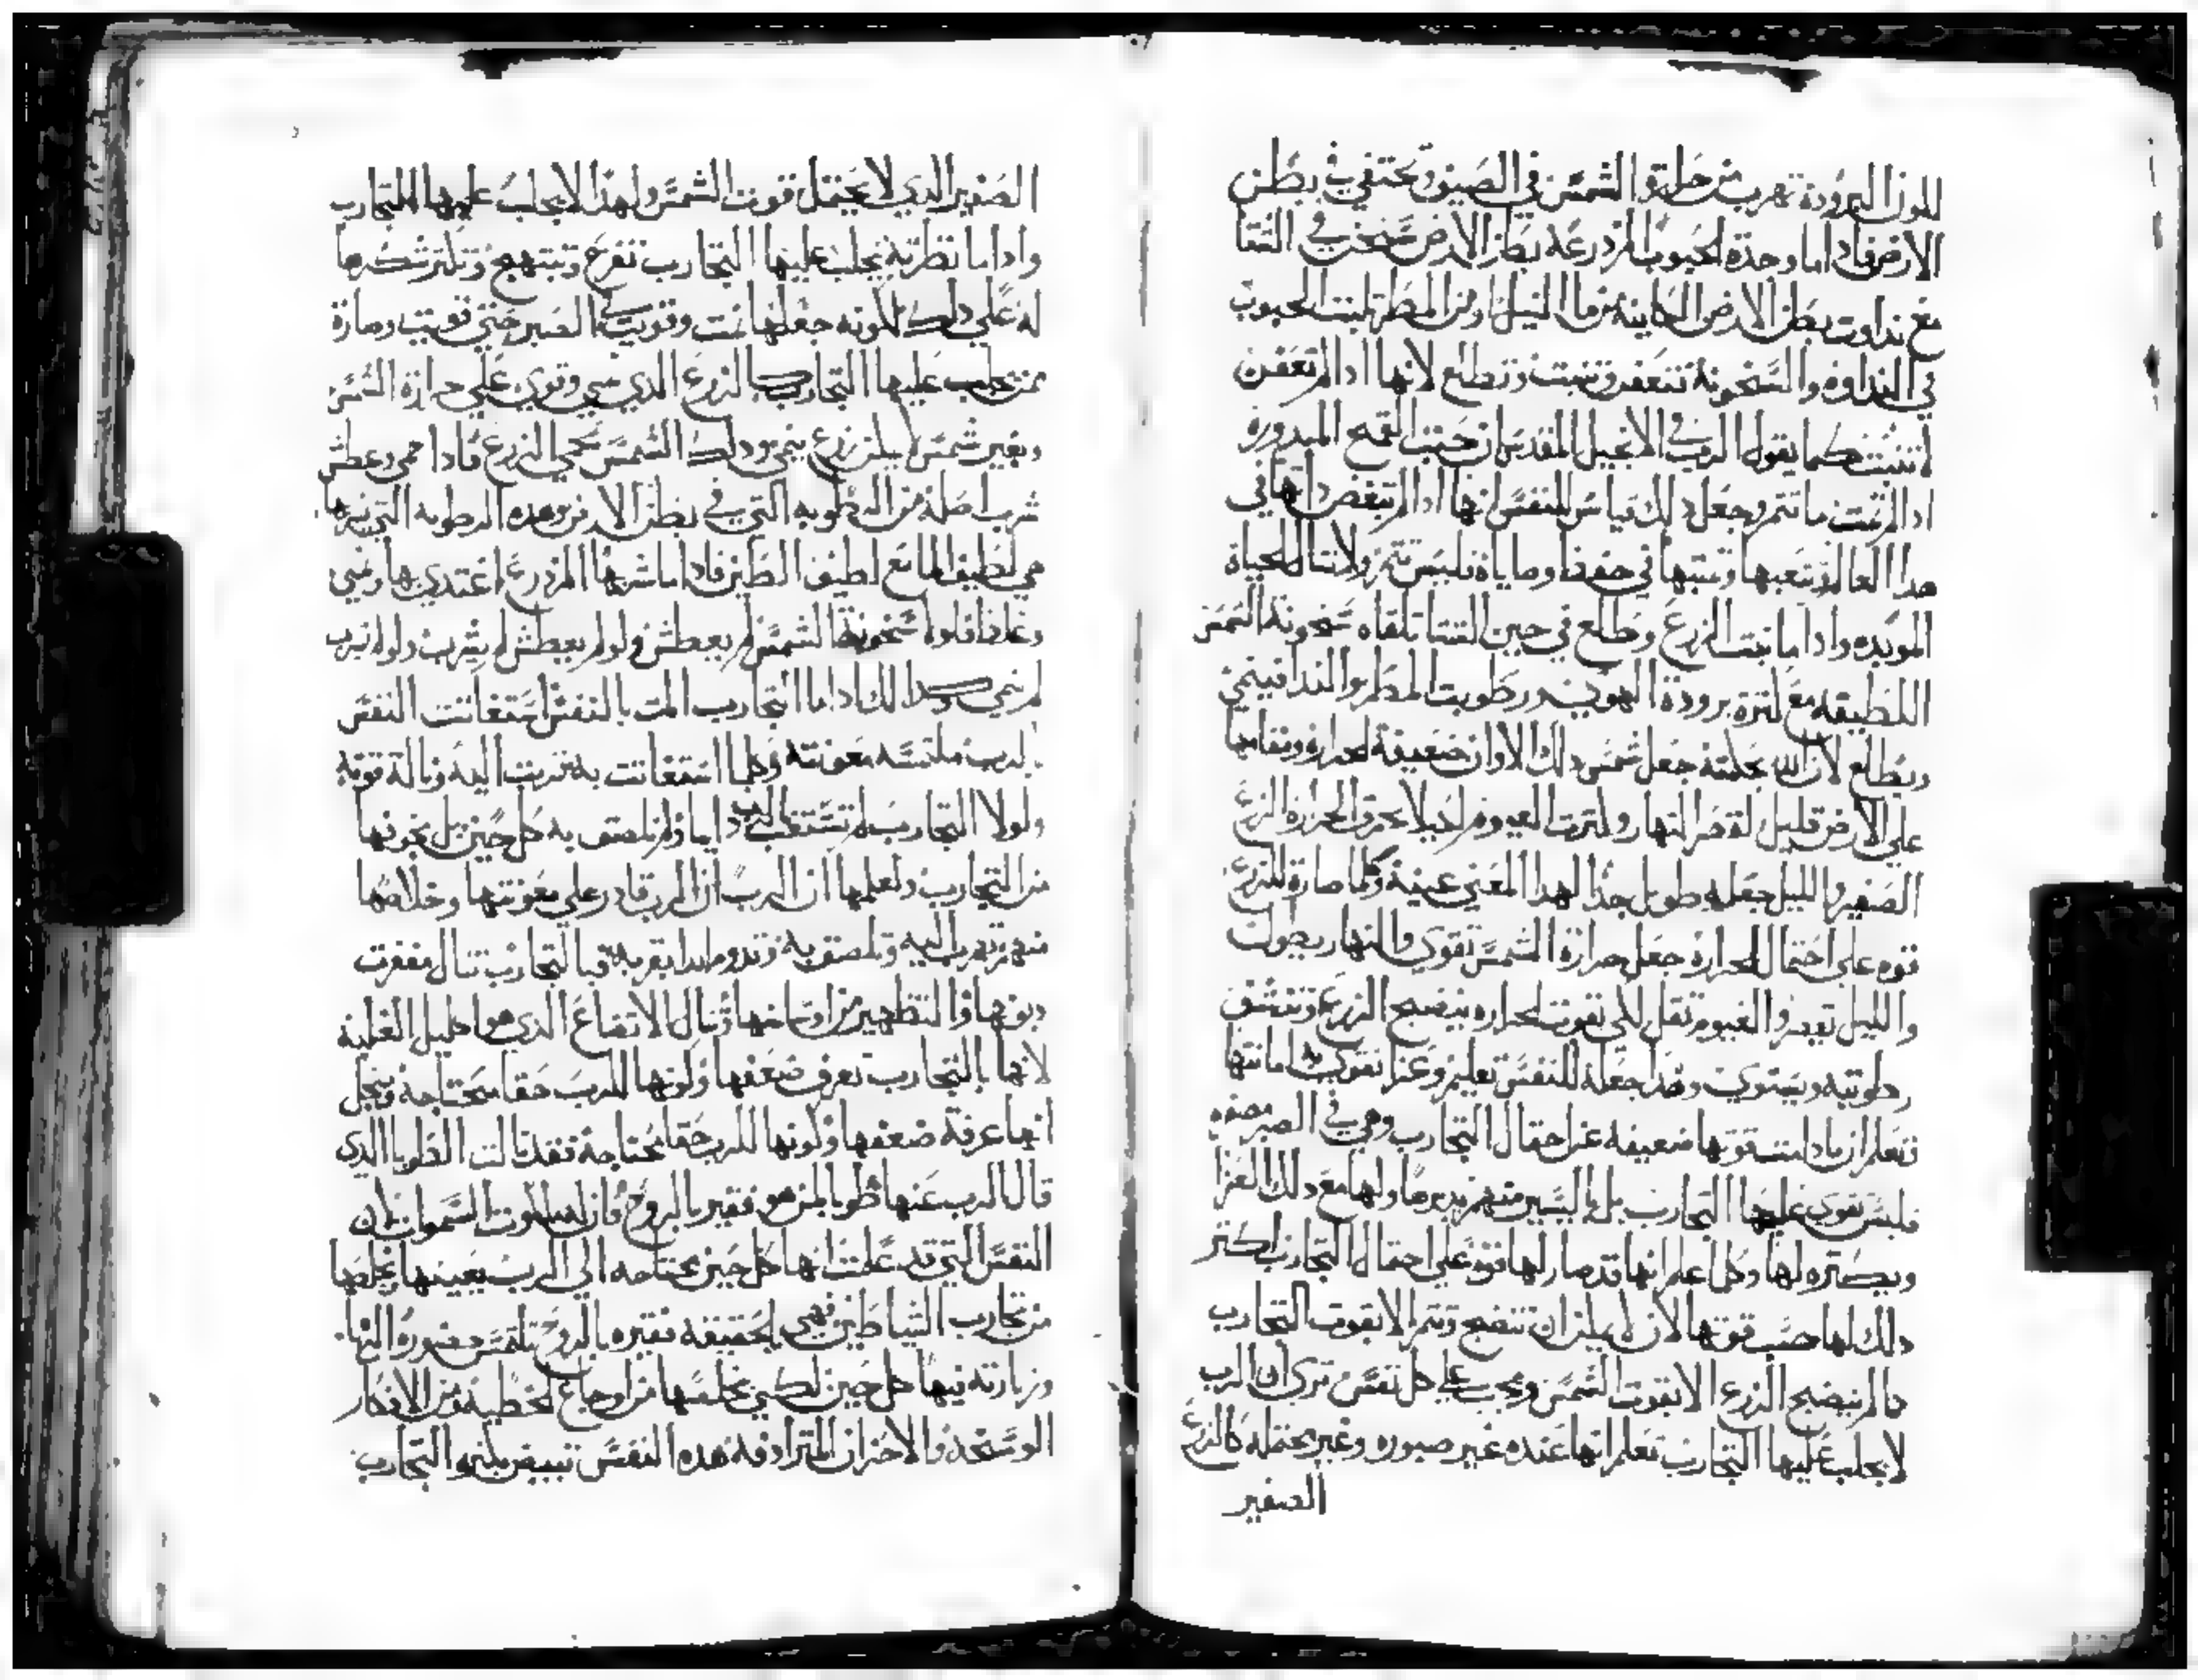 لكون البرودة تهرب من حرارة الشمس في الصيف وتختفي في بطن
الارض فادا ما وجدة الحبوب المزدرعه بطن الارض سخن في الشتا
مع نداوت بطن الارض الكاينه من ما النيل او من المطر لبنت الحبوب
في النداوه والسخونة تتعفن وتنبت وتطلع لانها ادا لم تعفن
لا تنبت كما يقول الرب في الانجيل المقدس ان حبت القمح المبدوره
ادا لم تمت ما تتمر وجعل دلك قياس للنفس انها ادا لم تبغض داتها في
هدا العالم وتتعبها وتميتها في حفظ وصاياه فليس تتمر ولا تنال الحياة
الموبده وادا ما نبت الزرع وطلع في حين الشتا تلقاه سخونة الشمس
اللطيفه مع كترة برودة الهوي ورطوبت المطر والندا فينمي
ويطلع لان الله بحكمته جعل شمس دلك الاوان ضعيفة الحراره ومقامها
علي الارض قليل لقصر النهار وكترت الغيوم لكيلا تحرق الحرارة الزرع
الصغير والليل جعله طويل جدا لهدا المعني عينه وكلما صارة للزرع
قوه علي احتمال الحرارة جعل حرارة الشمس تقوي والنهار يطول
والليل تقصر والغيوم تقل لكي تقوت الحراره ينضج الزرع وتنشف
رطوبته ويستوي وهدا جعله للنفس تعليم وعزا تقوي به امانتها
فتعلم ان مادامت قوتها ضعيفه عن احتمال التجارب وهي في الصبر صغيره
فليس تقوي عليها التجارب بل باليسير منهم يدربها ولها مع دلك العزا
ويكتره لها وكلما علم انها قد صار لها قوه علي احتمال التجارب اكتر
دلك لها حسب قوتها لان لا يمكن ان تنضج وتتمر الا بقوت التجارب
كما لم ينضج الزرع الا بقوت الشمس ويجب علي كل نفس تري ان الرب
لا يجلب عليها التجارب تعلم انها عنده غير صبوره وغير محتمله كالزرع
الصغير
الصغير الدي لا يحتمل قوت الشمس ولهدا لا يجلب عليها التجارب
وادا ما نظرته يجلب عليها التجارب تفرح وتبتهج وتكتر شكرها
له علي دلك لكونه جعلها نمت وقويت في الصبر حتي قويت وصارة
ممن يجلب عليها التجارب كالزرع الدي نمي وقوي علي حرارة الشمس
وبغير شمس لا يمكن زرع ينمي ودلك الشمس تحمي الزرع فادا حمي وعطش
شرب اصله من الرطوبه التي في بطن الارض وهده الرطوبه التي يشربها
هي لطيف الما مع لطيف الطين فادا ما شربها المزدرع اغتدي بها ونمي
وغلظ فلولا سخونة الشمس لم يعطش ولو لم يعطش لم يشرب ولو لم يشرب
لم ينمي كدالك ادا ما التجارب المت بالنفس استغاتت النفس
بالرب ملتمسه معونته وكلما استغاتت به قربت اليه ونالة قوته
ولولا التجارب لم تستغيت بالرب دايما ولم تلصق به كل حين بل بخوفها
من التجارب ولعلمها ان الرب ان الرب قادر علي معونتها وخلاصها
منهم تهرب اليه وتلصق به وتدوم ابدا بقربه فبالتجارب تنال مغفرت
دنوبها والتطهير من اوساخها وتنال الاتضاع الدي هو اكليل الغلبه
لانها بالتجارب تعرف ضعفها وكونها للرب حقا محتاجه ومن اجل
انها عرفة ضعفها وكونها للرب حقا محتاجة فقد نالت الطوبا الدي
قال الرب عنها طوبا لمن هو فقير بالروح فان له ملكوت السموات لان
النفس التي قد علمت انها كل حين محتاجه الي الرب يعينها يخلصها
من تجارب الشياطين فهي بالحقيقه فقيره بالروح تلتمس حضوره اليها
وزيارته فيها كل حين لكي يخلصها من اوجاع الخطيه ومن الافكار
الوسخه والاحزان المترادفة هده النفس تبيض بكترة التجارب